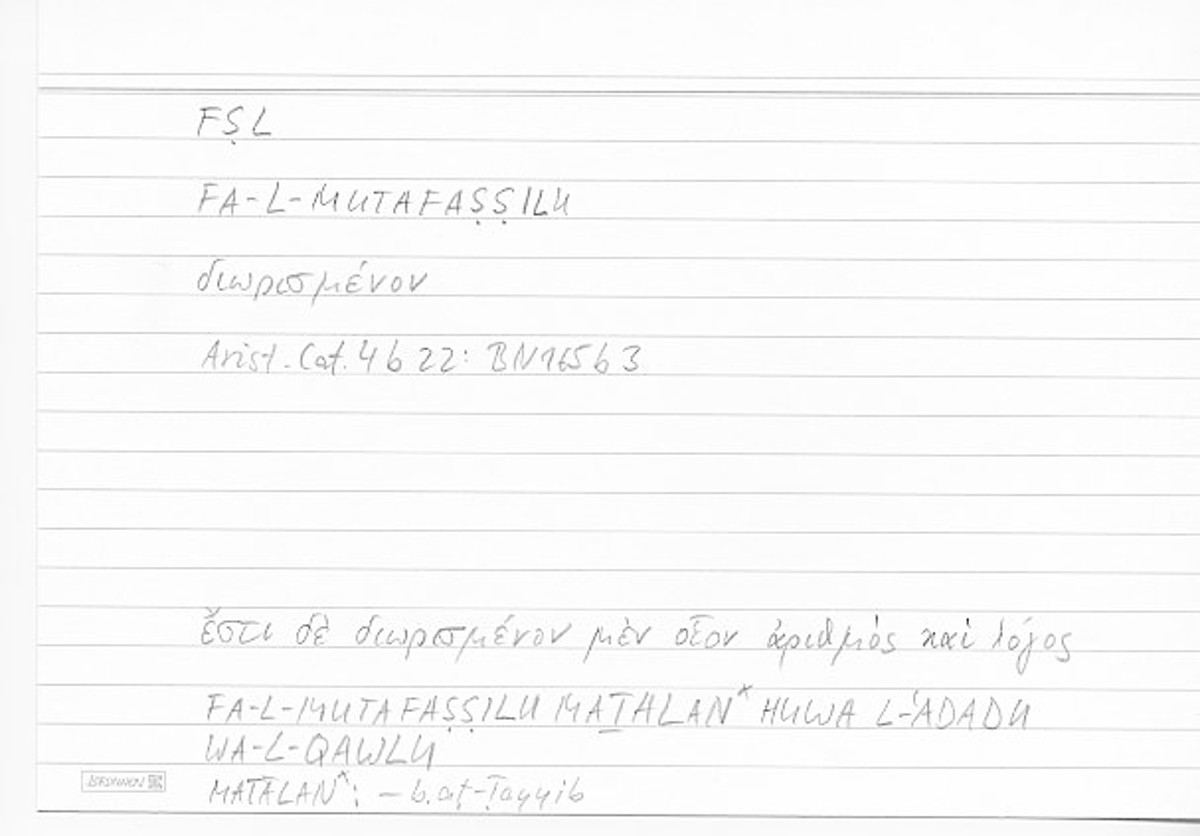 FṢL
FA-L-MUTAFAṢṢILU
διωρισμένον
Arist. Cat. 4 b 22: BN 165 b 3
ἔστι δὲ διωρισμένον μὲν οἷον ἀριθμὸς καὶ λόγος
FA-L-MUTAFAṢṢILU MAṮALAN* HUWA L-ʿADADU
WA-L-QAWLU
MAṮALAN*: – b. aṭ-Ṭayyib